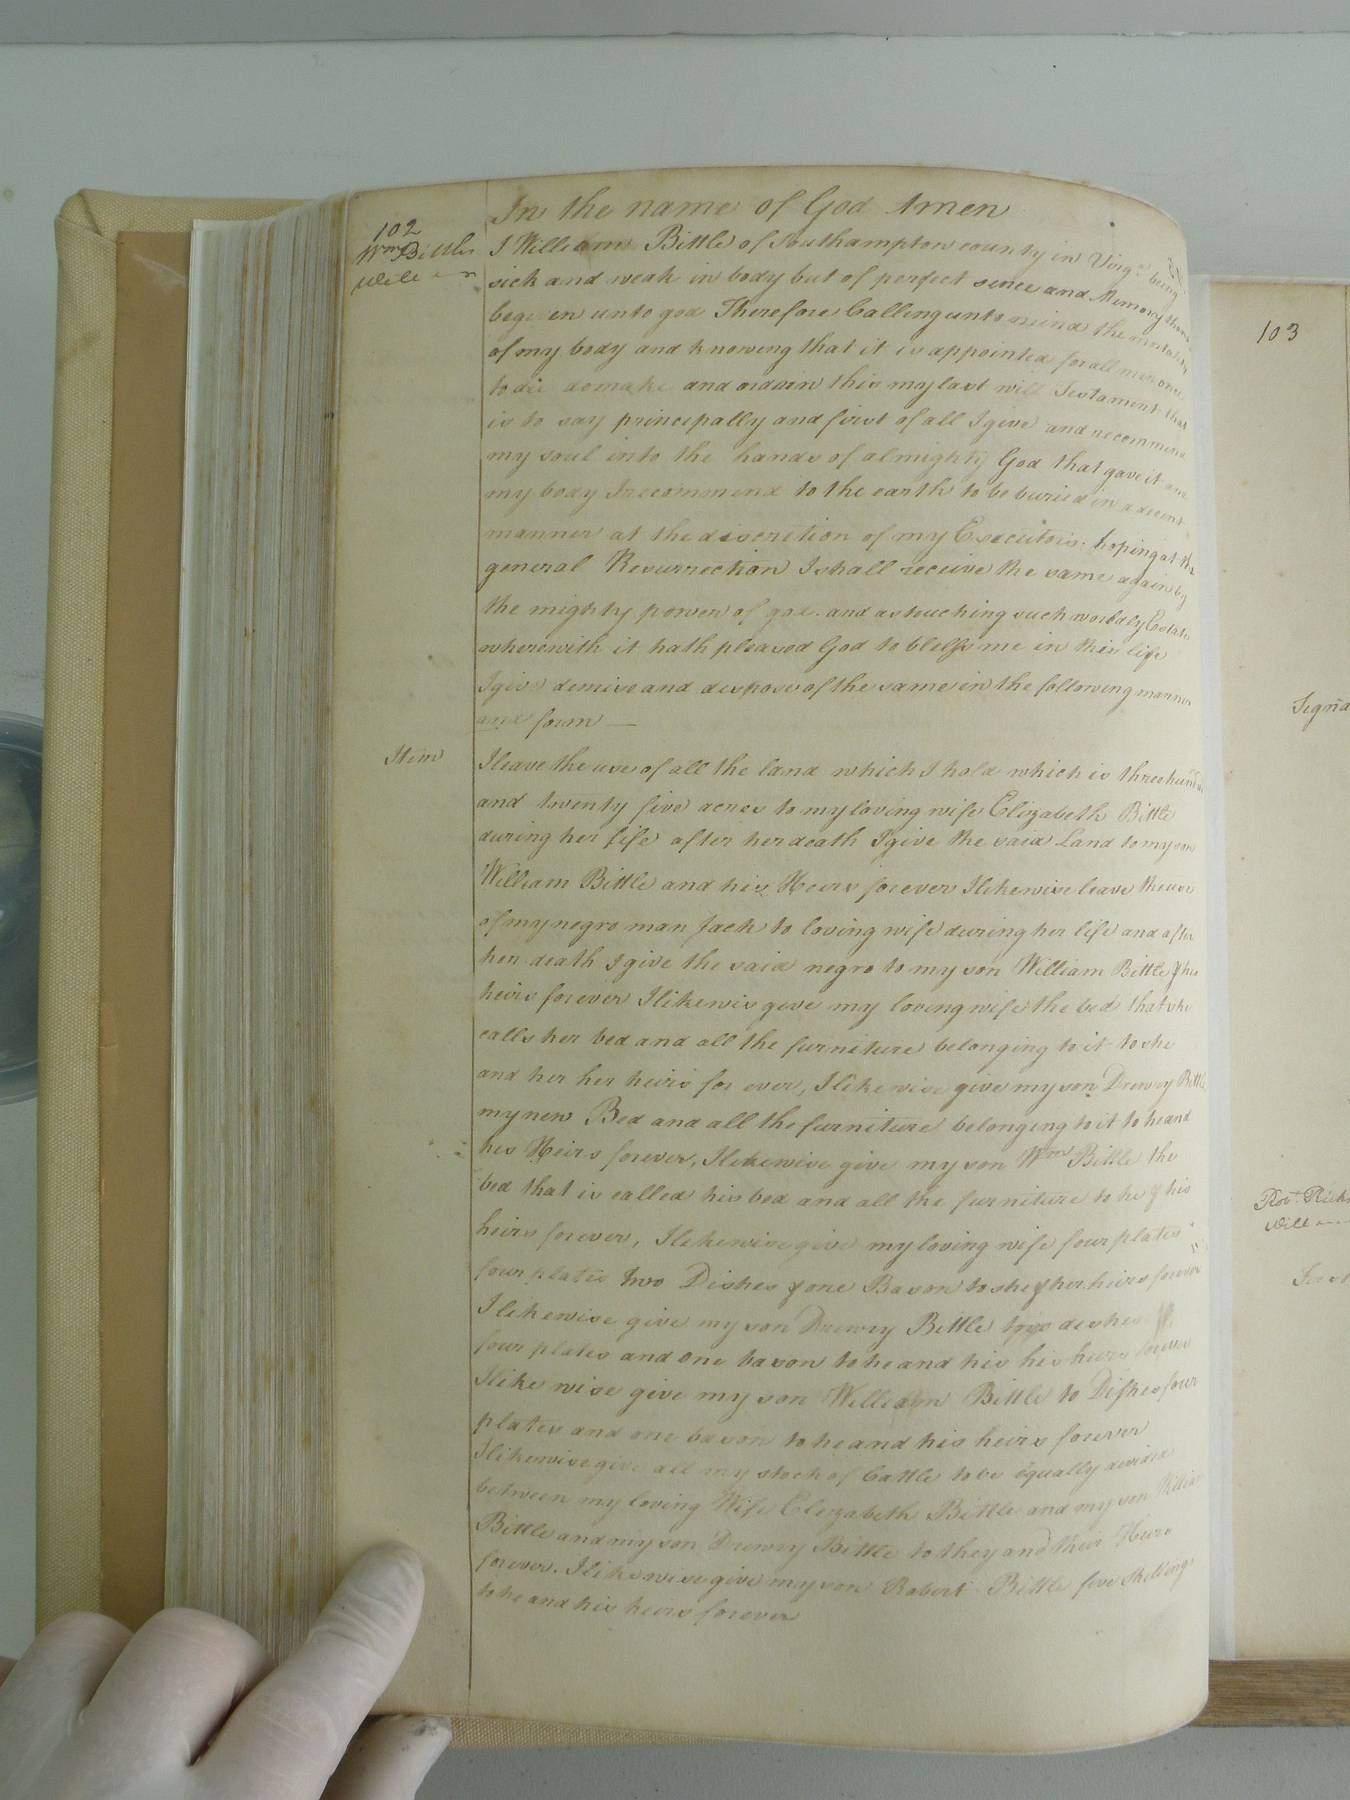 102
Wm Bittles
Will
In the name of God Amen
I William Bittle of Southampton county in Virga being
sick and weak in body but of perfect sence and Memory thanks
begiven unto god Therefore Calling unto mind the mortality
of my body and knowing that it is appointed for all men once
to die do make and ordain this my last will Testament that
is to say principally and first of all I give and recommend
my soul into the hands of almighty God that gave it and
my body I recommend to the earth to be buried in a decent
manner at the discretion of my Executors. hoping at the
general Resurrection I shall receive the same again by
the mighty power of god. and as touching such worldly Estate
wherewith it hath pleased God to bless me in this life
I give demise and dispose of the same in the following manner
and form —
Item
I leave the use of all the land which I hold which is three hundred
and twenty five acres to my loving wife Elizabeth Bittle
during her life after her death I give the said Land to my son
William Bittle and his Heirs forever I likewise leave the use
of my negro man Jack to loving wife during her life and after
her death I give the said negro to my son William Bittle & his
heirs forever I likewis give my loving wife the bed that she
calls her bed and all the furniture belonging to it to she
and her her heirs for ever, I likewise give my son Drewry Bittle
my new Bed and all the furniture belonging to it to he and
his Heirs forever, I likewise give my son Wm Bittle the
bed that is called his bed and all the furniture to he & his
heirs forever, I likewise give my loving wife four plates
four plates two Dishes & one Bason to she & her heirs forever
I likewise give my son Drewry Bittle two dishes
four plates and one bason to he and his his heirs forever
I like wise give my son William Bittle to Dishes four
plates and one bason to he and his heirs forever
I likewise give all my stock of Cattle to be equally devided
between my loving Wife Elizabeth Bittle and my son William
Bittle and my son Drewry Bittle to they and their Heirs
forever. I likewise give my son Robert Bittle five shillings
to he and his heirs forever
103
Signd
Robt. Rick
Will